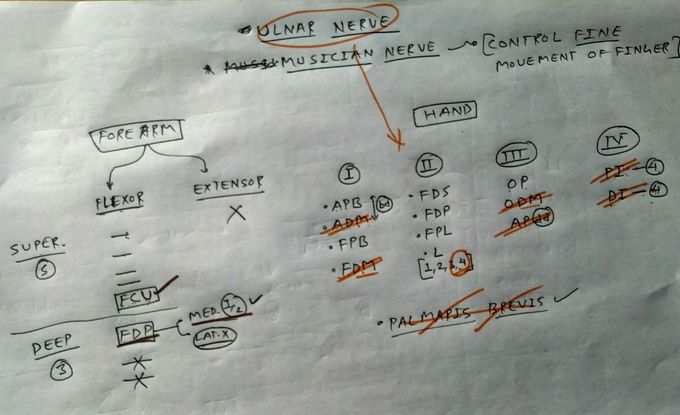 ULNAR NERVE
* MUSICIAN NERVE [CONTROL FINE
MOVEMENT OF FINGER]
HAND
FORE ARM
FLEXOR
EXTENSOR
X
SUPER.
5
FCU
DEEP
3
FDP
MED. 1/2 ✓
LAT. X
I
• APB
• ADM
• FPB
• FDM
II
• FDS
• FDP
• FPL
• L
[1,2,3,4]
III
OP
ODM
AP
IV
PI - 4
DI - 4
• PALMARIS BREVIS ✓